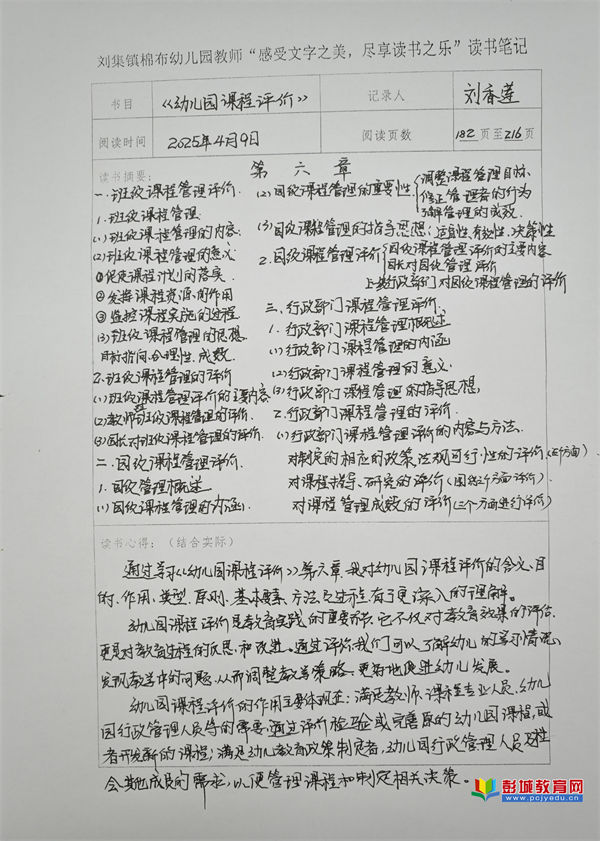 刘集镇棉布幼儿园教师“感受文字之美，尽享读书之乐”读书笔记
书目 《幼儿园课程评价》 记录人 刘香莲
阅读时间 2025年4月9日 阅读页数 182页至216页
读书摘要：
第六章
一.班级课程管理评价.
1.班级课程管理
(1)班级课程管理的内容:
(2)班级课程管理的意义:
①促使课程计划的落实.
②发挥课程资源的作用
③监控课程实施的过程
(3)班级课程管理的思想
目标指向、合理性、成效.
2.班级课程管理的评价
(1)班级课程管理评价的主要内容
(2)教师对班级课程管理的评价.
(3)园长对班级课程管理的评价.
二.园级课程管理评价.
1.园级管理概述
(1)园级课程管理的内涵
(2)园级课程管理的重要性
调整课程管理目标
修正管理者的行为
了解管理的成效.
(3)园级课程管理的指导思想:适宜性、有效性、决策性
2.园级课程管理评价
园级课程管理评价的主要内容
园长对园级管理评价
上级行政部门对园级课程管理的评价
三.行政部门课程管理评价.
1.行政部门课程管理概述
(1)行政部门课程管理的内涵
(2)行政部门课程管理的意义.
(3)行政部门课程管理的指导思想,
2.行政部门课程管理的评价.
(1)行政部门课程管理评价的内容与方法.
对制定的相应的政策法规可行性的评价(三个方面).
对课程指导、研究的评价(围绕三个方面评价).
对课程管理成效的评价(三个方面进行评价)
读书心得：（结合实际）
通过学习《幼儿园课程评价》第六章,我对幼儿园课程评价的含义、目
的、作用、类型、原则、基本要素、方法及过程有了更深入的理解。
幼儿园课程评价是教育实践的重要环节,它不仅对教育效果的评估,
更是对教育过程的反思和改进。通过评价,我们可以了解幼儿的学习情况,
发现教学中的问题,从而调整教学策略,更好地促进幼儿发展。
幼儿园课程评价的作用主要体现在:满足教师、课程专业人员、幼儿
园行政管理人员等的需要,通过评价检验或完善原的幼儿园课程,或
者开发新的课程;满足幼儿教育政策制定者,幼儿园行政管理人员及社
会其他成员的需求,以便管理课程和制定相关决策。
彭城教育网
www.pcjyedu.cn